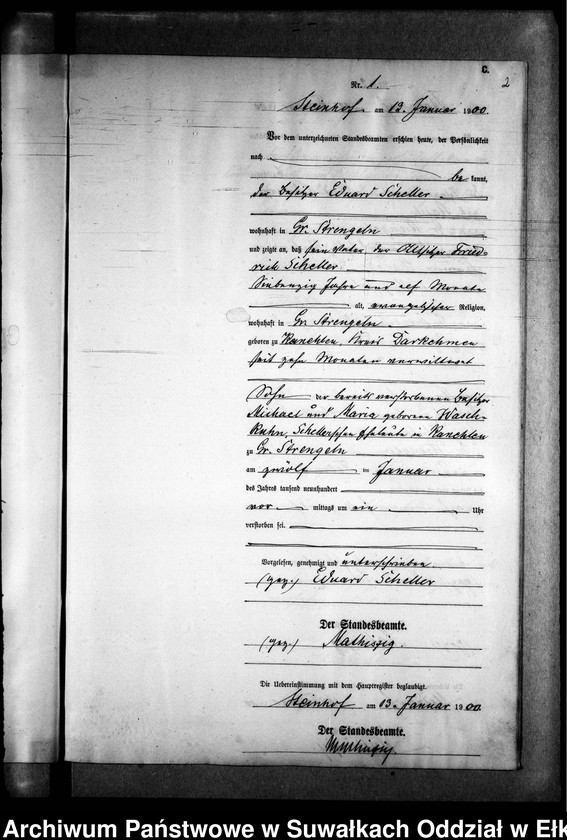 C.
2
Nr. 1.
Steinhof am 13. Januar 1900.
Vor dem unterzeichneten Standesbeamten erschien heute, der Persönlichkeit
nach
be kannt,
der Besitzer Eduard Scheller
wohnhaft in Gr. Strengeln
und zeigte an, daß sein Vater, der Altsitzer Fried-
rich Scheller
Siebenzig Jahre und elf Monate
alt, evangelischer Religion,
wohnhaft in Gr. Strengeln
geboren zu Ranchten, Kreis Darkehmen
seit zehn Monaten verwittwet
Sohn der bereits verstorbenen Besitzer
Michael und Maria geborene Wasch-
kuhn, Schellerschen Eheleute in Ranchten
zu Gr. Strengeln
am zwölf im Januar
des Jahres tausend neunhundert
vor mittags um ein Uhr
verstorben sei.
Vorgelesen, genehmigt und unterschrieben
(gez.) Eduard Scheller
Der Standesbeamte.
(gez.) Mathissig.
Die Uebereinstimmung mit dem Hauptregister beglaubigt.
Steinhof am 13. Januar 1900
Der Standesbeamte.
Archiwum Państwowe w Suwałkach Oddział w Ełk